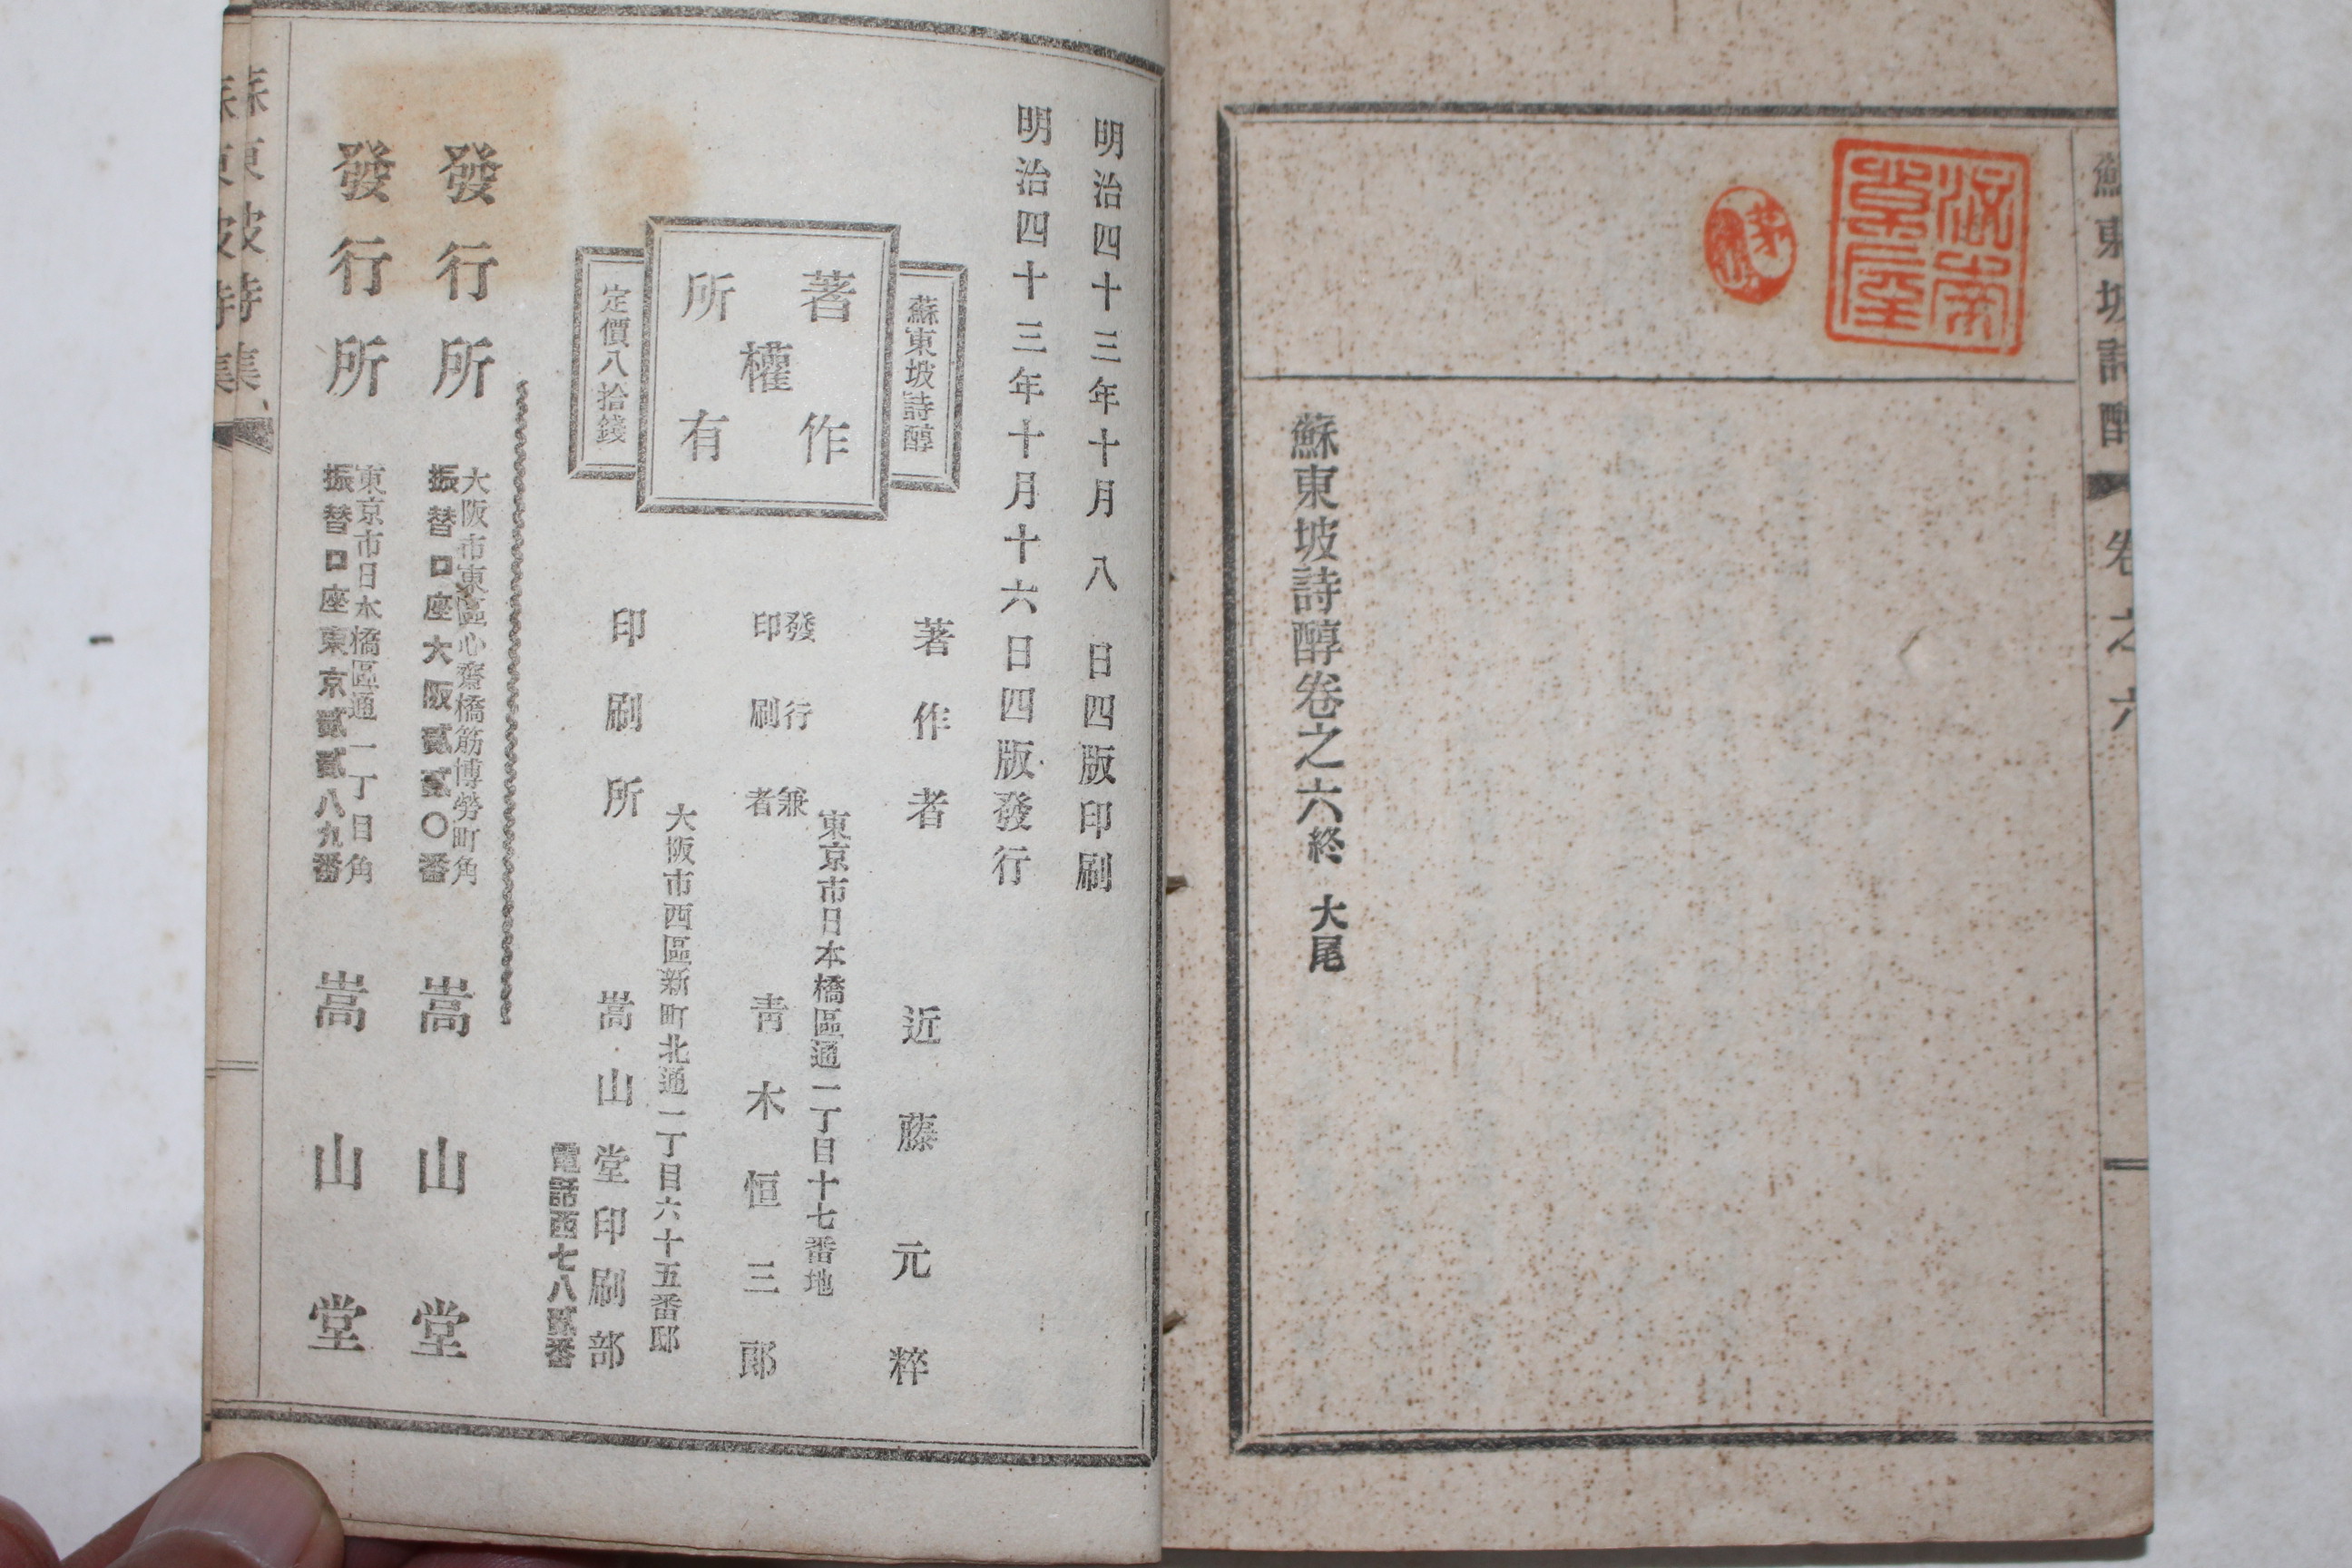 蘇東坡詩醇
卷之六
蘇東坡詩醇卷之六終 大尾
明治四十三年十月八日四版印刷
明治四十三年十月十六日四版發行
蘇東坡詩醇
著作
權
所有
定價八拾錢
著作者 近藤元粹
東京市日本橋區通一丁目十七番地
發行兼
印刷者
青木恒三郎
大阪市西區新町北通一丁目六十五番邸
印刷所 嵩山堂印刷部
電話西七八貳番
發行所
大阪市東區心齋橋筋博勞町角
振替口座大阪貳貳〇番
嵩山堂
發行所
東京市日本橋區通一丁目角
振替口座東京貳貳八九番
嵩山堂
蘇東坡詩集
蘇東坡詩集